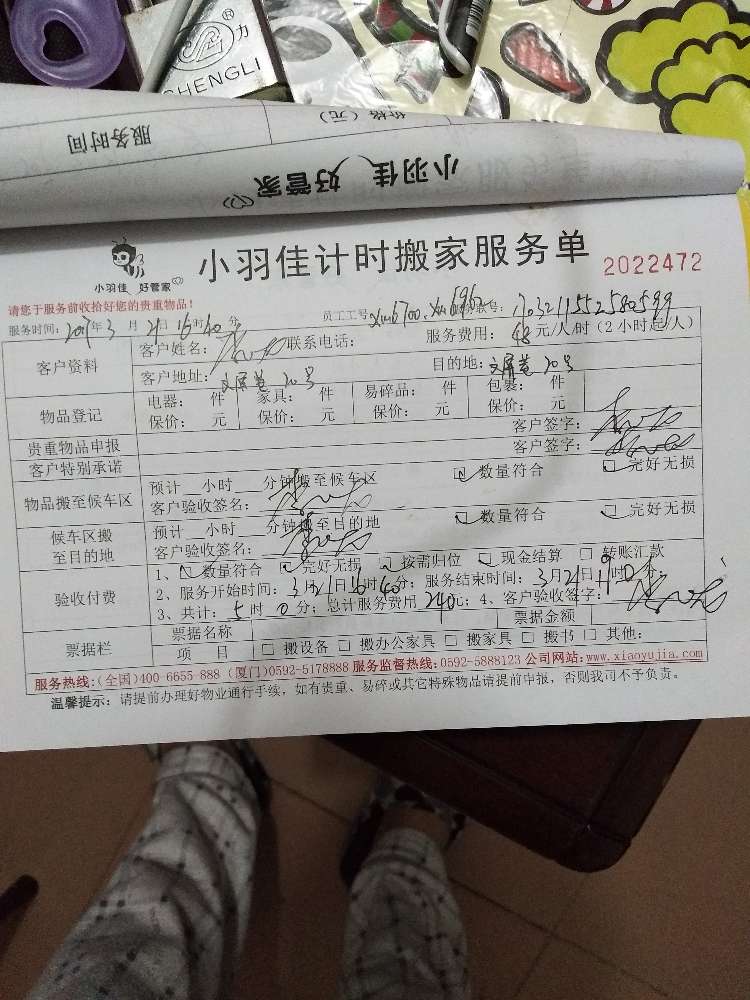 力
CHENGLI
服务时间
价格（元）
小羽佳 好管家
小羽佳计时搬家服务单 2022472
小羽佳 好管家
请您于服务前收拾好您的贵重物品！
服务时间： 年 3 月 21 日 16 时 40 分 员工工号 xm6700、xm696 号：
客户资料 客户姓名： 联系电话： 服务费用：48元/人/时（2小时起/人）
客户地址：文屏苑 20号 目的地：文屏苑 20号
物品登记 电器： 件 家具： 件 易碎品： 件 包裹： 件
保价： 元 保价： 元 保价： 元 保价： 元
贵重物品申报 客户签字：
客户特别承诺 客户签字：
物品搬至候车区 预计 小时 分钟搬至候车区 数量符合 完好无损
客户验收签名：
候车区搬至目的地 预计 小时 分钟搬至目的地 数量符合 完好无损
客户验收签名：
验收付费 1、 数量符合 完好无损 按需归位 现金结算 转账汇款
2、服务开始时间：3月21日16时40分；服务结束时间：3月21日 时 分；
3、共计：5时0分；总计服务费用240元；4、客户验收签字：
票据栏 票据名称 票据金额
项 目 搬设备 搬办公家具 搬家具 搬书 其他：
服务热线：(全国)400-6655-888 (厦门)0592-5178888 服务监督热线：0592-5888123 公司网站：www.xiaoyujia.com
温馨提示：请提前办理好物业通行手续，如有贵重、易碎或其它特殊物品请提前申报，否则我司不予负责。